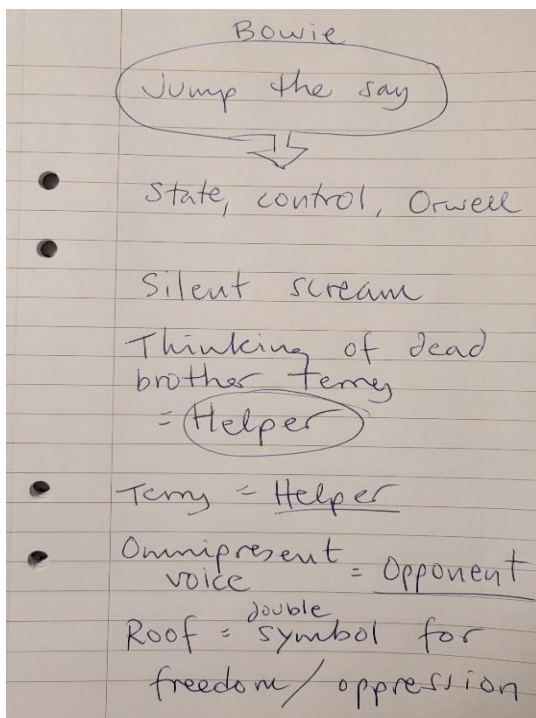 Bowie
Jump the say
State, control, Orwell
Silent scream
Thinking of dead
brother Terry
= Helper
Terry = Helper
Omnipresent
voice = Opponent
double
Roof = symbol for
freedom / oppression